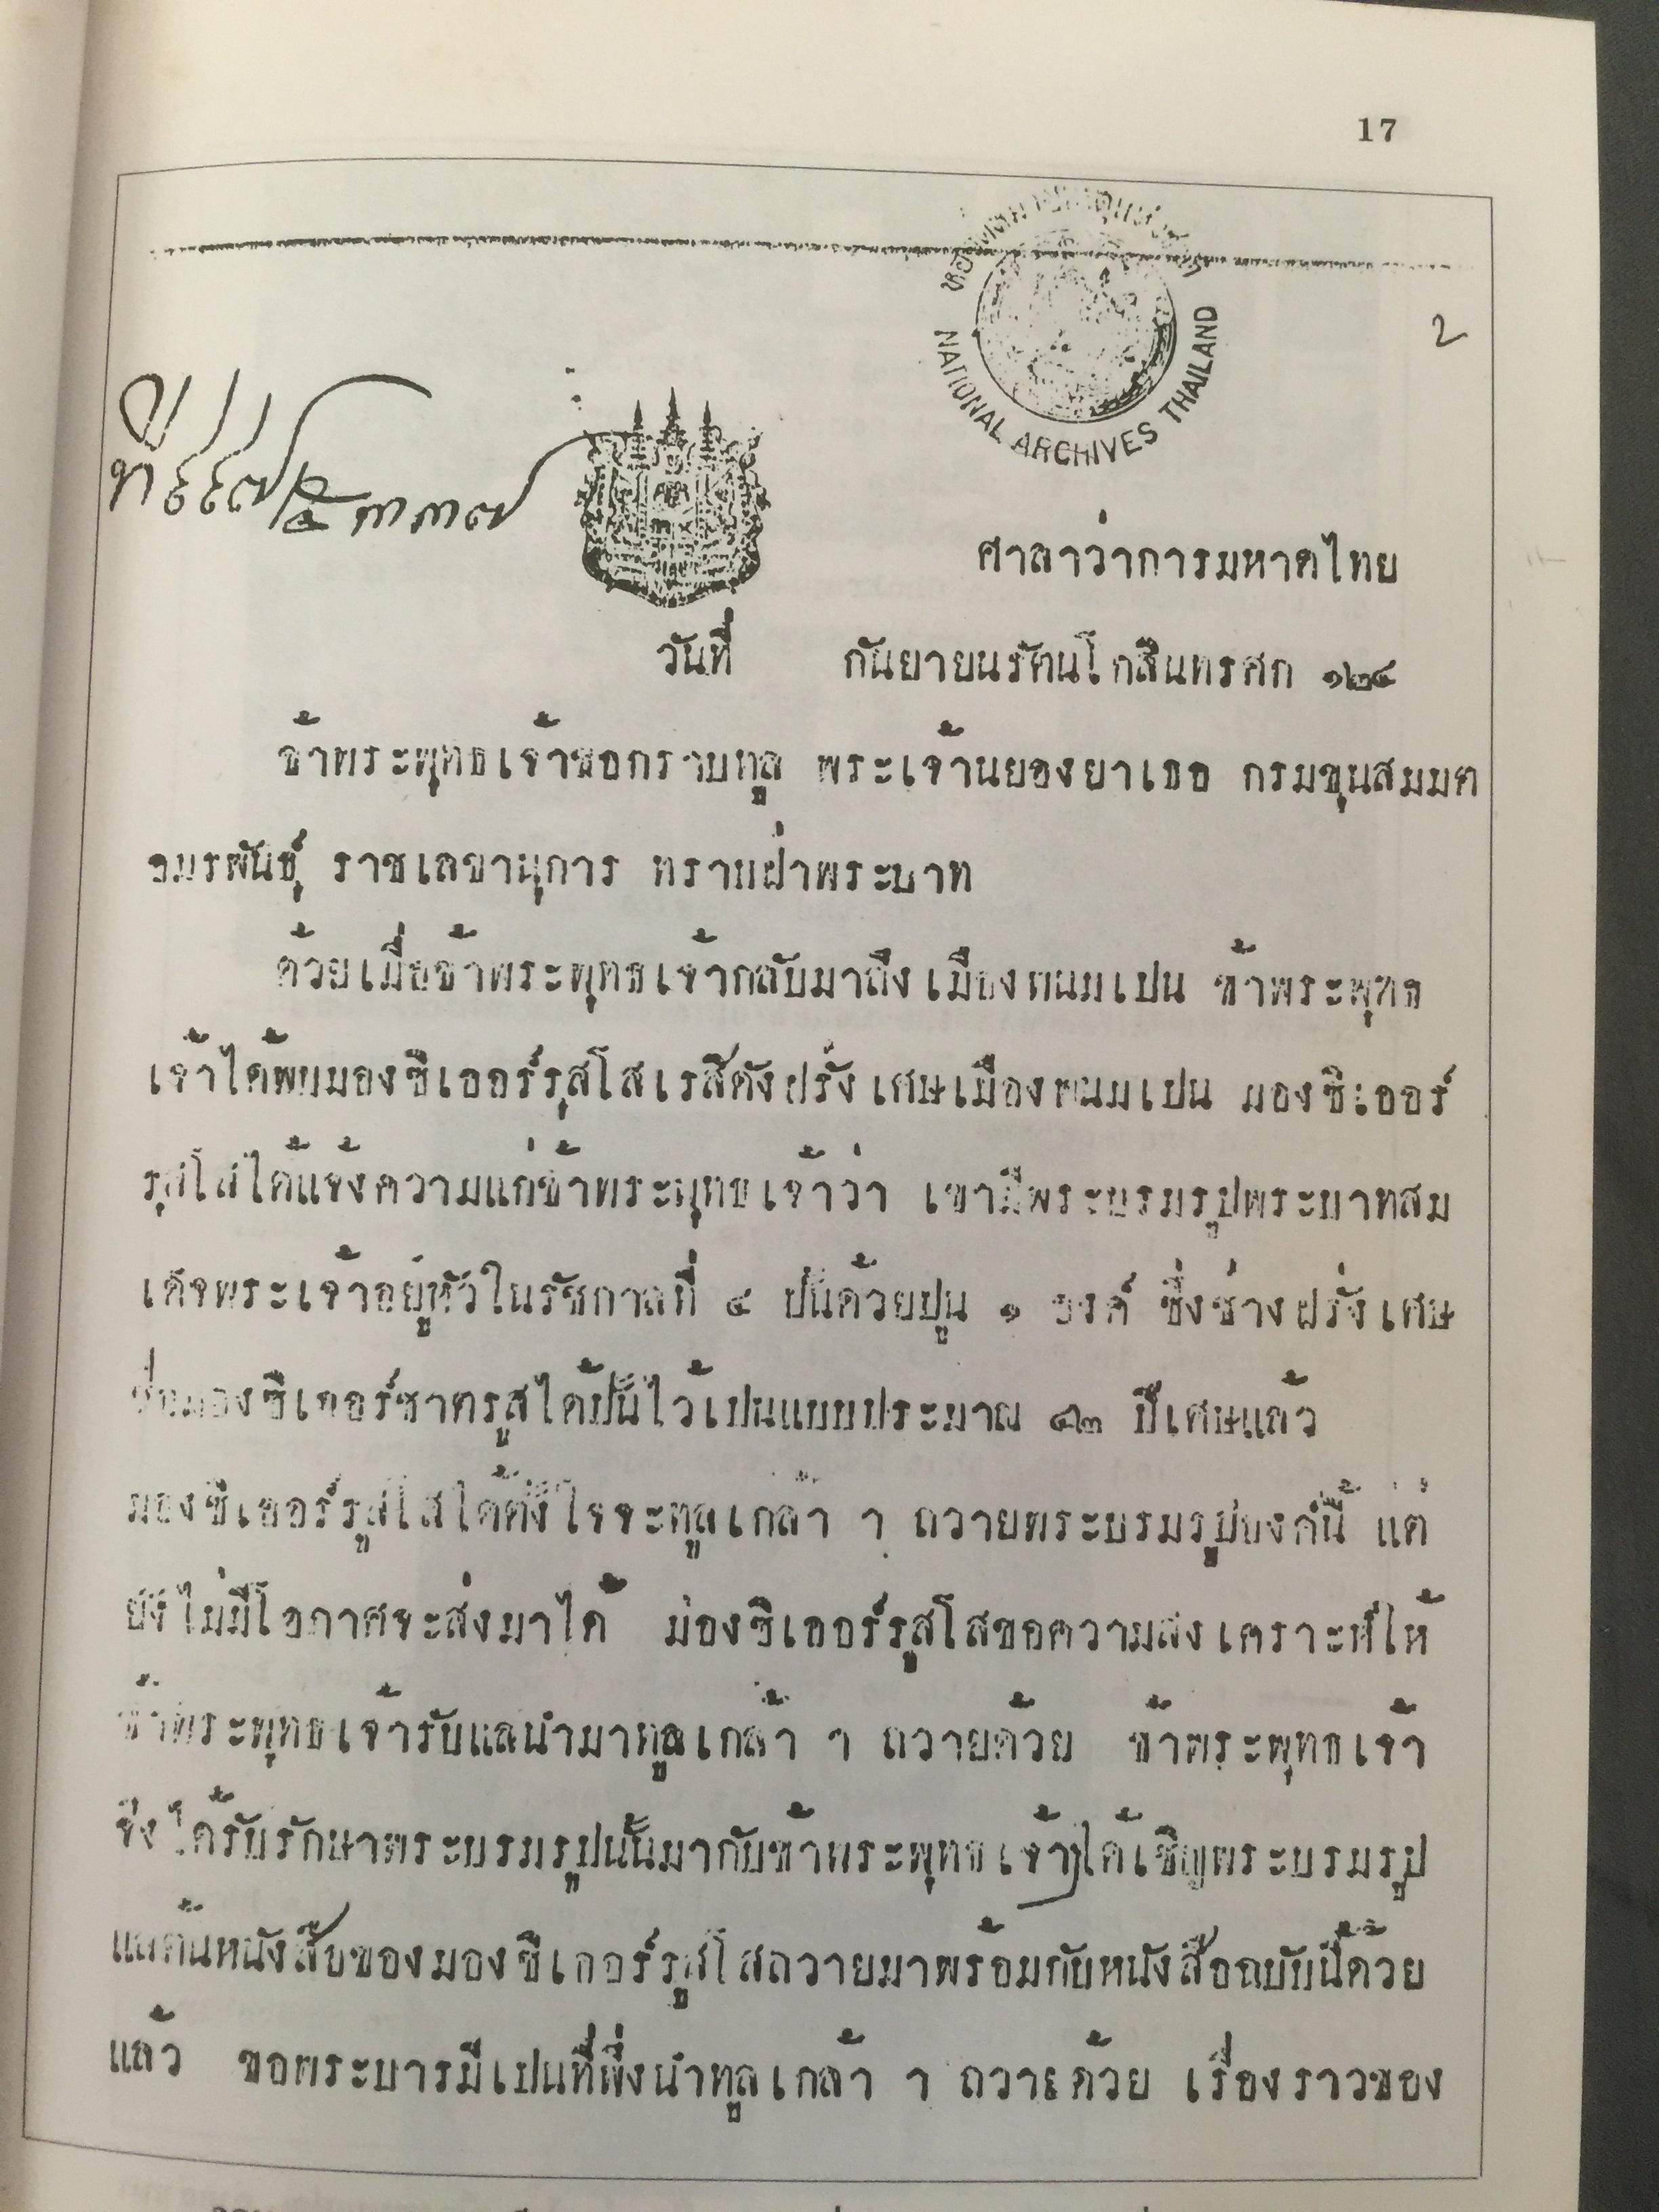 17
หอจดหมายเหตุแห่งชาติ
NATIONAL ARCHIVES THAILAND
2
ศาลาว่าการมหาดไทย
วันที่ กันยายนรัตนโกสินทรศก ๑๒๔
ข้าพระพุทธเจ้าขอกราบทูล พระเจ้านยองยาเธอ กรมขุนสมมต
อมรพันธุ์ ราชเลขานุการ ทราบฝ่าพระบาท
ด้วยเมื่อข้าพระพุทธเจ้ากลับมาถึงเมืองพนมเปน ข้าพระพุทธ
เจ้าได้พบมองซิเออร์รุสโสเรสิดังฝรั่งเศษเมืองพนมเปน มองซิเออร์
รุสโสได้แจ้งความแก่ข้าพระพุทธเจ้าว่า เขามีพระบรมรูปพระบาทสม
เด็จพระเจ้าอยู่หัวในรัชกาลที่ ๔ ปั้นด้วยปูน ๑ องค์ ซึ่งช่างฝรั่งเศษ
ชื่อมองซิเออร์ชาตรูสได้ปั้นไว้เปนแบบประมาณ ๔๒ ปีเศษแล้ว
มองซิเออร์รูสโสได้ตั้งใจจะทูลเกล้า ฯ ถวายพระบรมรูปองค์นี้ แต่
ยังไม่มีโอกาศจะส่งมาได้ มองซิเออร์รูสโสขอความสงเคราะห์ให้
ข้าพระพุทธเจ้ารับแลนำมาทูลเกล้า ฯ ถวายด้วย ข้าพระพุทธเจ้า
จึงได้รับรักษาพระบรมรูปนั้นมากับข้าพระพุทธเจ้า ได้เชิญพระบรมรูป
แลต้นหนังสือของมองซิเออร์รูสโสถวายมาพร้อมกับหนังสือฉบับนี้ด้วย
แล้ว ขอพระบารมีเปนที่พึ่งนำทูลเกล้า ฯ ถวายด้วย เรื่องราวของ